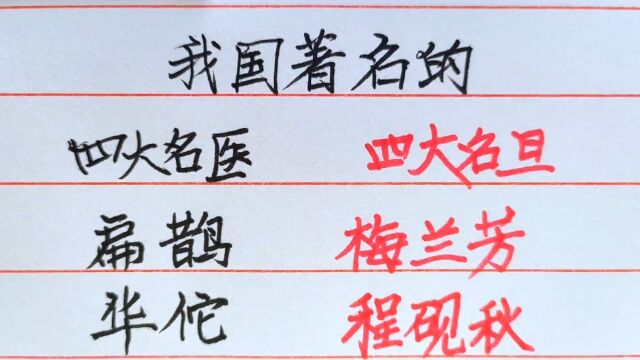 我国著名的
四大名医 四大名旦
扁鹊 梅兰芳
华佗 程砚秋